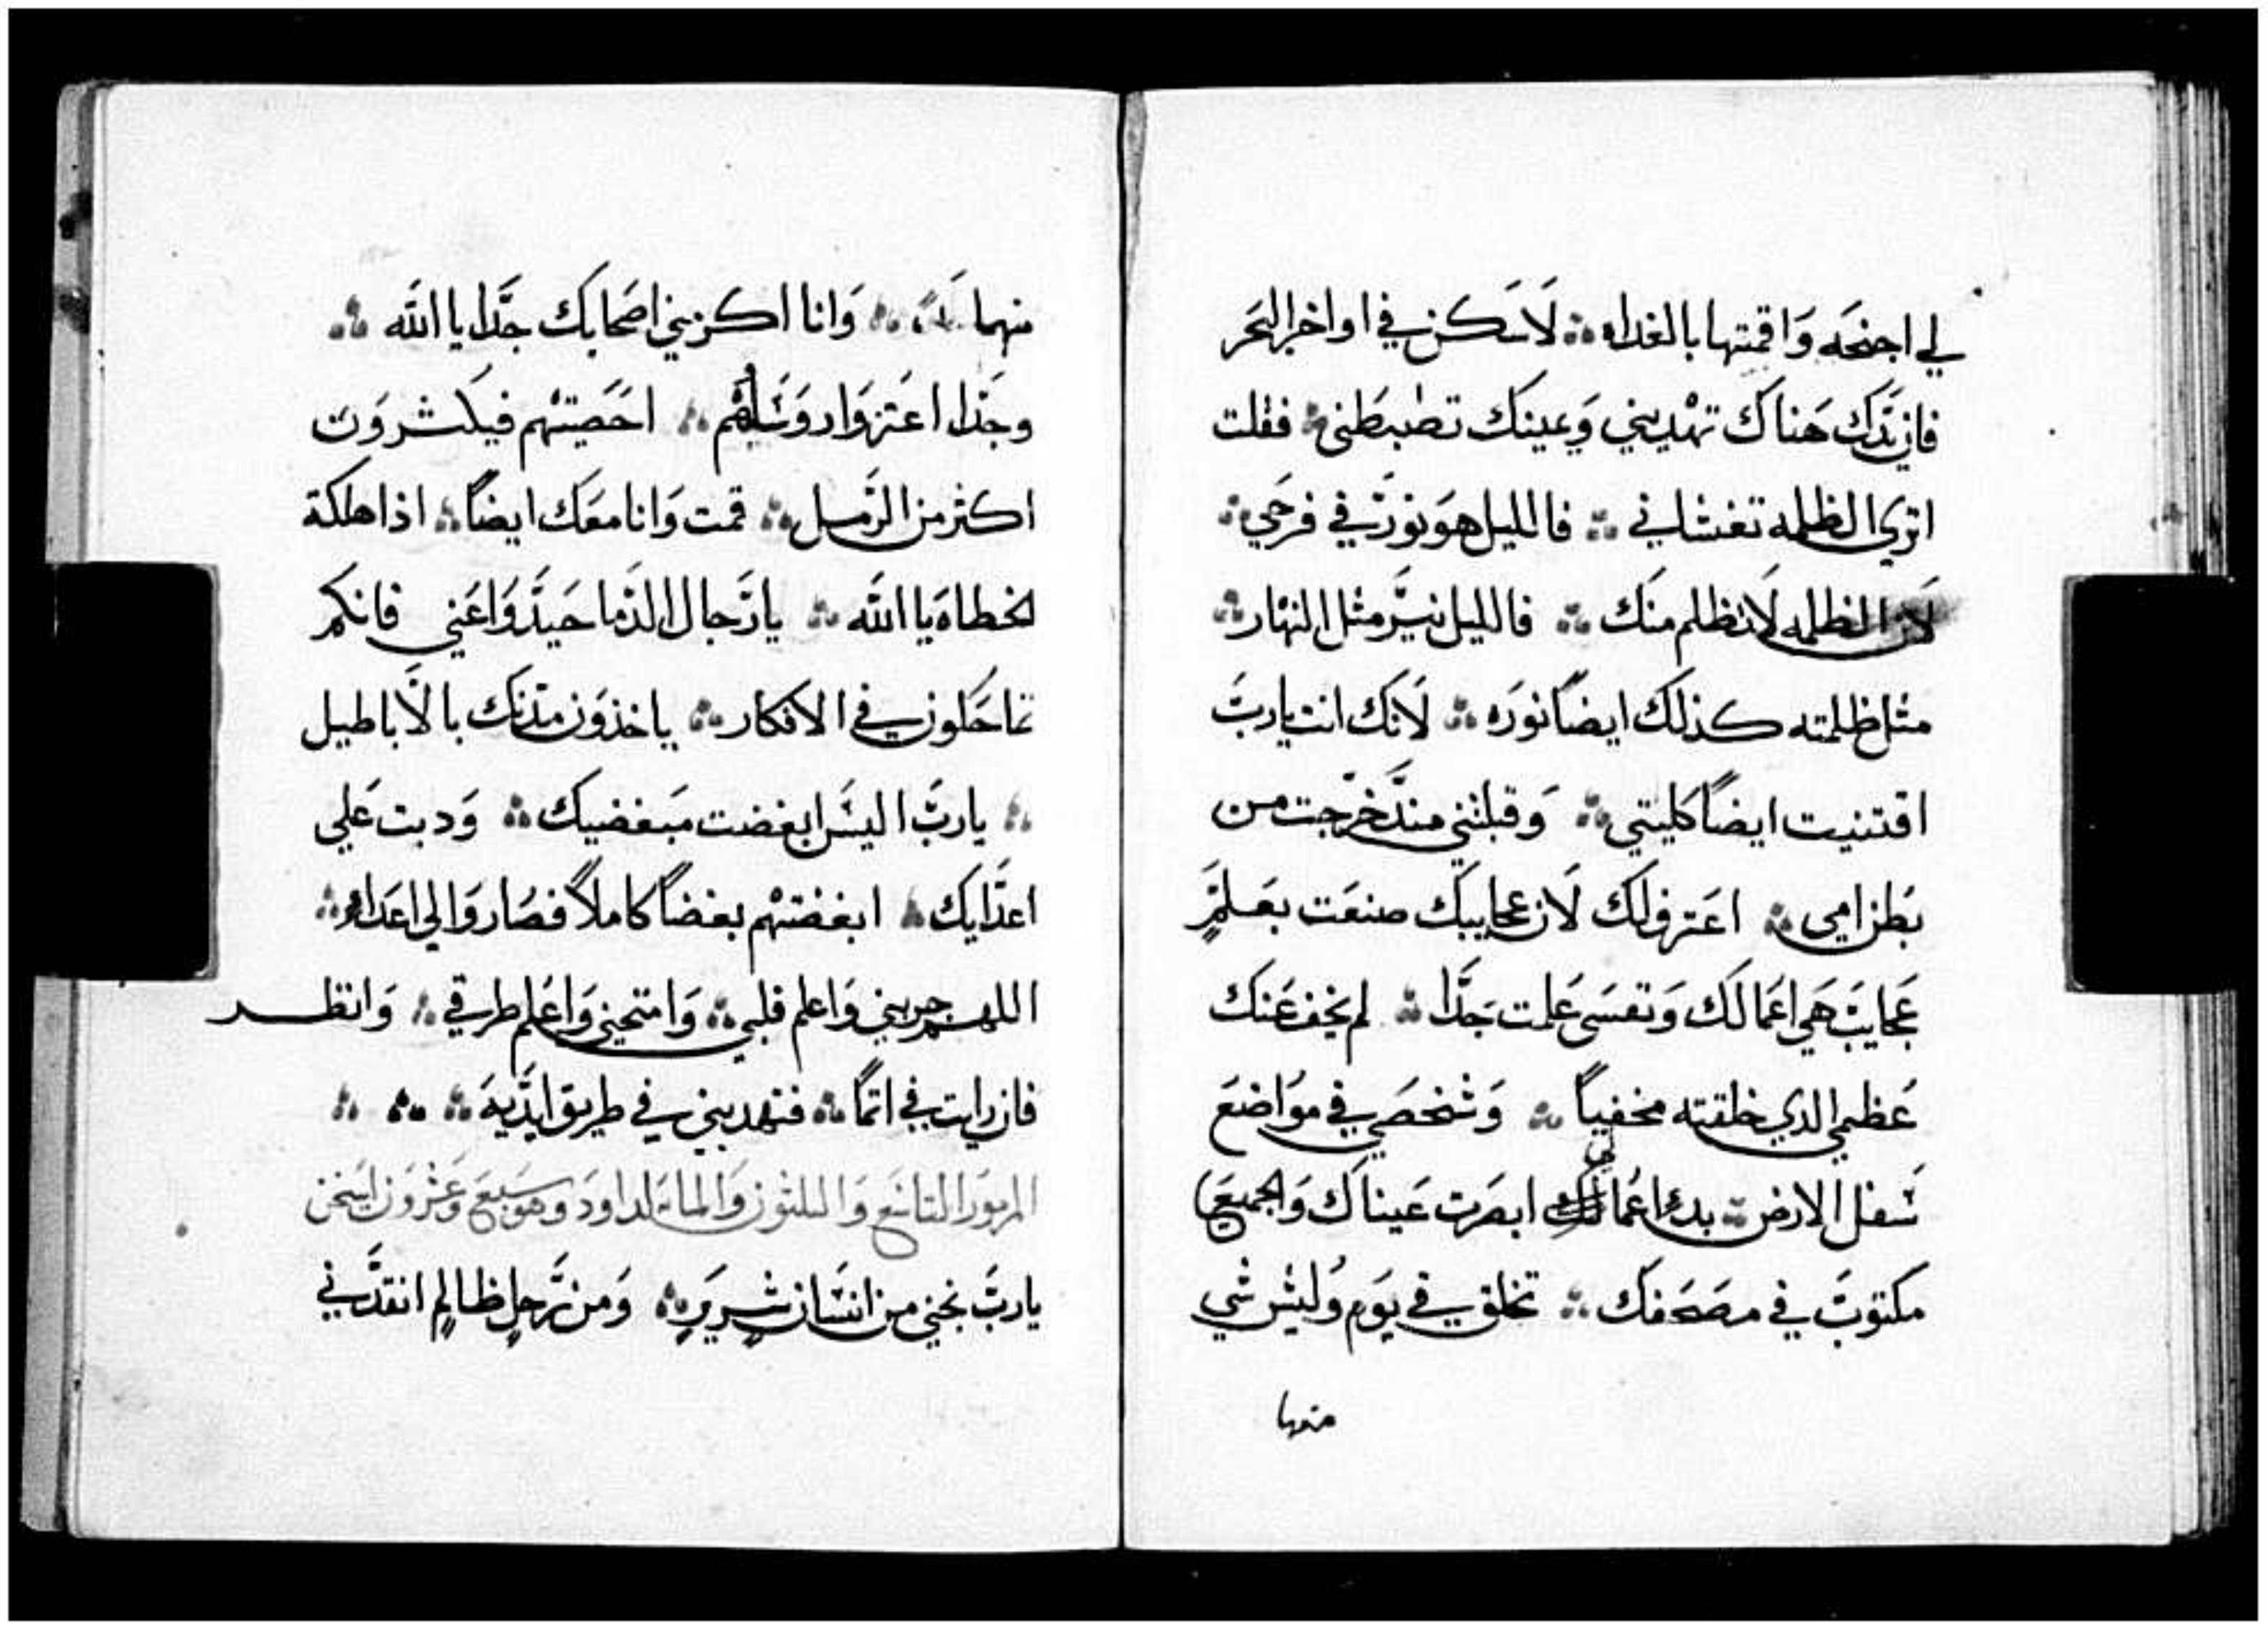 لي اجنحَه وَاقمتها بالغداه ؞ لَاسَكن في اواخر البَحر
فان يَدَك هَناك تهْديني وَيمينك تضبطني ؞ فقلت
اتري الظلمه تغشاني ؞ فالليل هوَ نورٌ في فرحَي ؞
لَان الظلمه لَا تظلم منَك ؞ فالليل نيَّر مثل النهَار ؞
مثل ظلمته كذلك ايضاً نورَه ؞ لَانك انت يا ربَّ
اقتنيت ايضاً كليتي ؞ وَقبلتني منذ خرَجت من
بَطن امي ؞ اعَترف لَك لَان عجايبك صنعَت بعَلمٍ
عَجايبٌ هَي اعَمالك وَنفسَي عَلمت جَدَّا ؞ لم يخف عَنك
عَظمي الدي خلقته مخفياً ؞ وَشخصَي في موَاضعَ
سَفل الارض ؞ بدء اعَمالي ابصَرت عَيناك وَالجميعَ
مكتوبٌ في مصَحَفك ؞ تخلق في يوَم وَليسَ شي
منها
منهما ؞ وَانا اكرمني اصَحابك جَدَّا يا اللَه ؞
وجَدَا اعَتزوَا روَسَاهَم ؞ احَصَيتهْم فيكثروَن
اكثر من الرَمل ؞ قمت وَانا معَك ايضاً ؞ اذا هلكة
الخطاة يا اللَه ؞ يا رَجال الدَما حَيدَوا عَني فانكم
تماحَكون في الافكار ؞ ياخذوَن مدَنك بالَاباطيل
؞ يا ربَّ اليسَ ابغضت مَبغضيك ؞ وَدبت عَلي
اعدَايك ؞ ابغضتهْم بغضاً كاملاً فصَاروَا لي اعَداء ؞
اللهم جربني وَاعلم قلبي ؞ وَامتحَني وَاعَلم طرقي ؞ وَانظر
فان رايت في اثمَا ؞ فتهديني في طريق ابدَيهَ ؞ ؞ ؞
المزموَر التاسَع وَالثلثون وَالمايه لداودَ وهوَ سَبعَ وَعَشروَن اسَتخن
يا ربَّ نجني من انسَان شريرٍ ؞ وَمن رَجلٍ ظالمٍ انقدَني